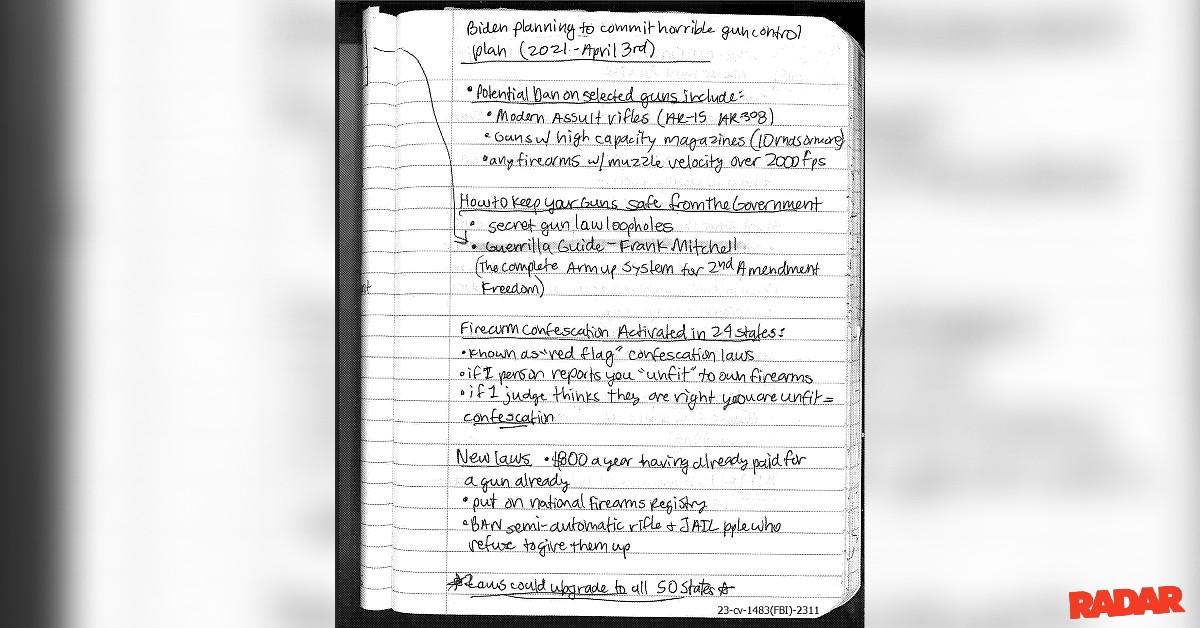 Biden planning to commit horrible gun control
plan (2021 - April 3rd)
• Potential ban on selected guns include:
• Modern Assult rifles (AR-15 AR-308)
• Guns w/ high capacity magazines (10 rnds or more)
• any firearms w/ muzzle velocity over 2000 fps
How to keep your Guns safe from the Government
• secret gun law loopholes
• Guerrilla Guide - Frank Mitchell
(The complete Arm up System for 2nd Amendment
Freedom)
Firearm confescation Activated in 24 states:
• known as "red flag" confescation laws
• if 1 person reports you "unfit" to own firearms
• if 1 judge thinks they are right you are unfit =
confescation
New laws • $800 a year having already paid for
a gun already
• put on national firearms Registry
• BAN semi-automatic rifle + JAIL pple who
refuse to give them up
☆ Laws could upgrade to all 50 states ☆
23-cv-1483(FBI)-2311
RADAR